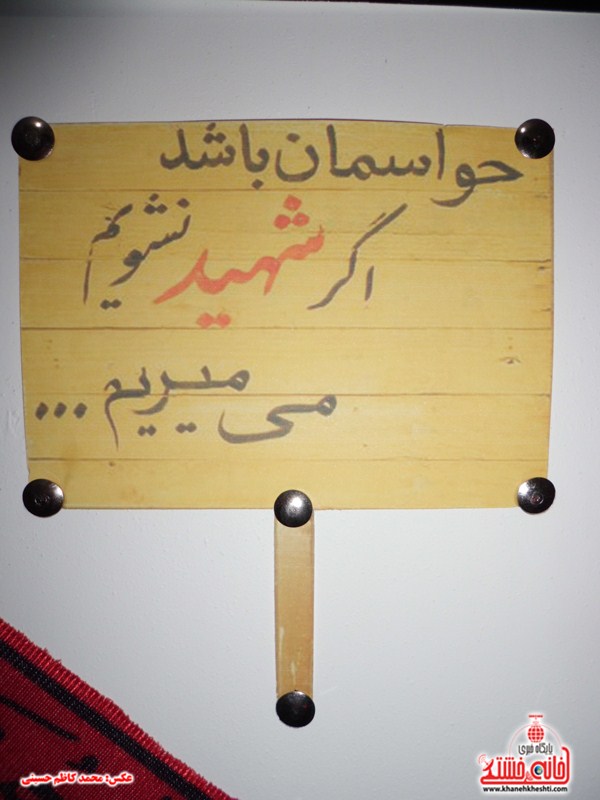 حواسمان باشد
اگر شهید نشویم
می میریم ...
عکس: محمد کاظم حسینی
پایگاه خبری
خانه خشتی
www.khanehkheshti.com